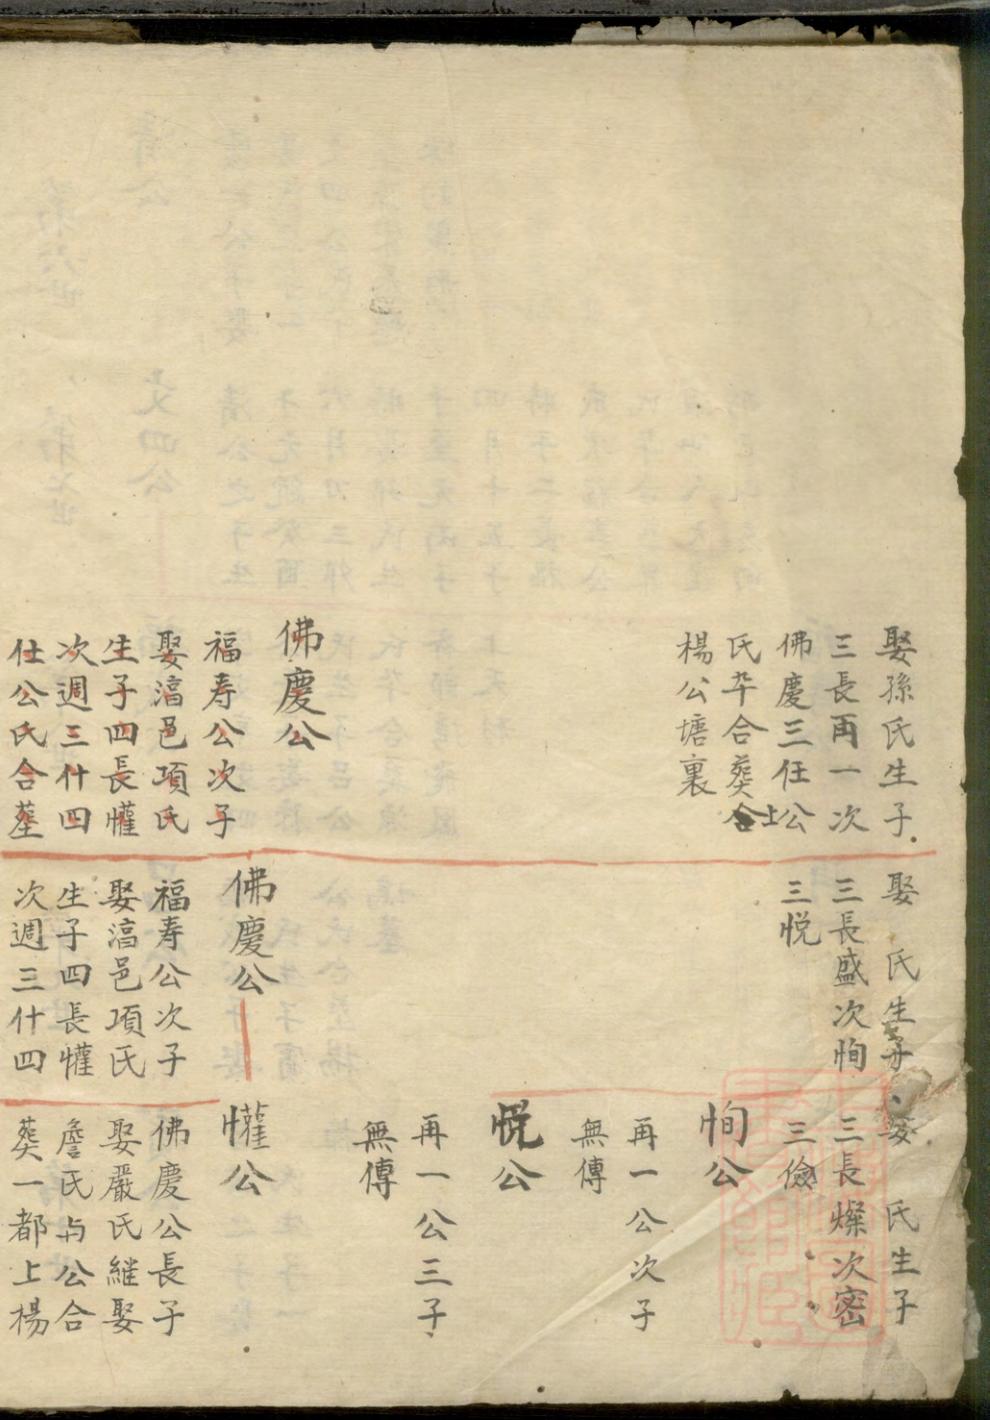 娶孫氏生子
三長再一次
佛慶三任公
氏卒合葬土
楊公塘裏
佛慶公
福寿公次子
娶湻邑項氏
生子四長懽
次週三什四
仕公氏合塟
娶 氏生子
三長盛次恂
三悦
佛慶公
福寿公次子
娶湻邑項氏
生子四長懽
次週三什四
娶 氏生子
三長燦次密
三儉
恂公
再一公次子
無傳
悦公
再一公三子
無傳
懽公
佛慶公長子
娶嚴氏継娶
詹氏与公合
葬一都上楊